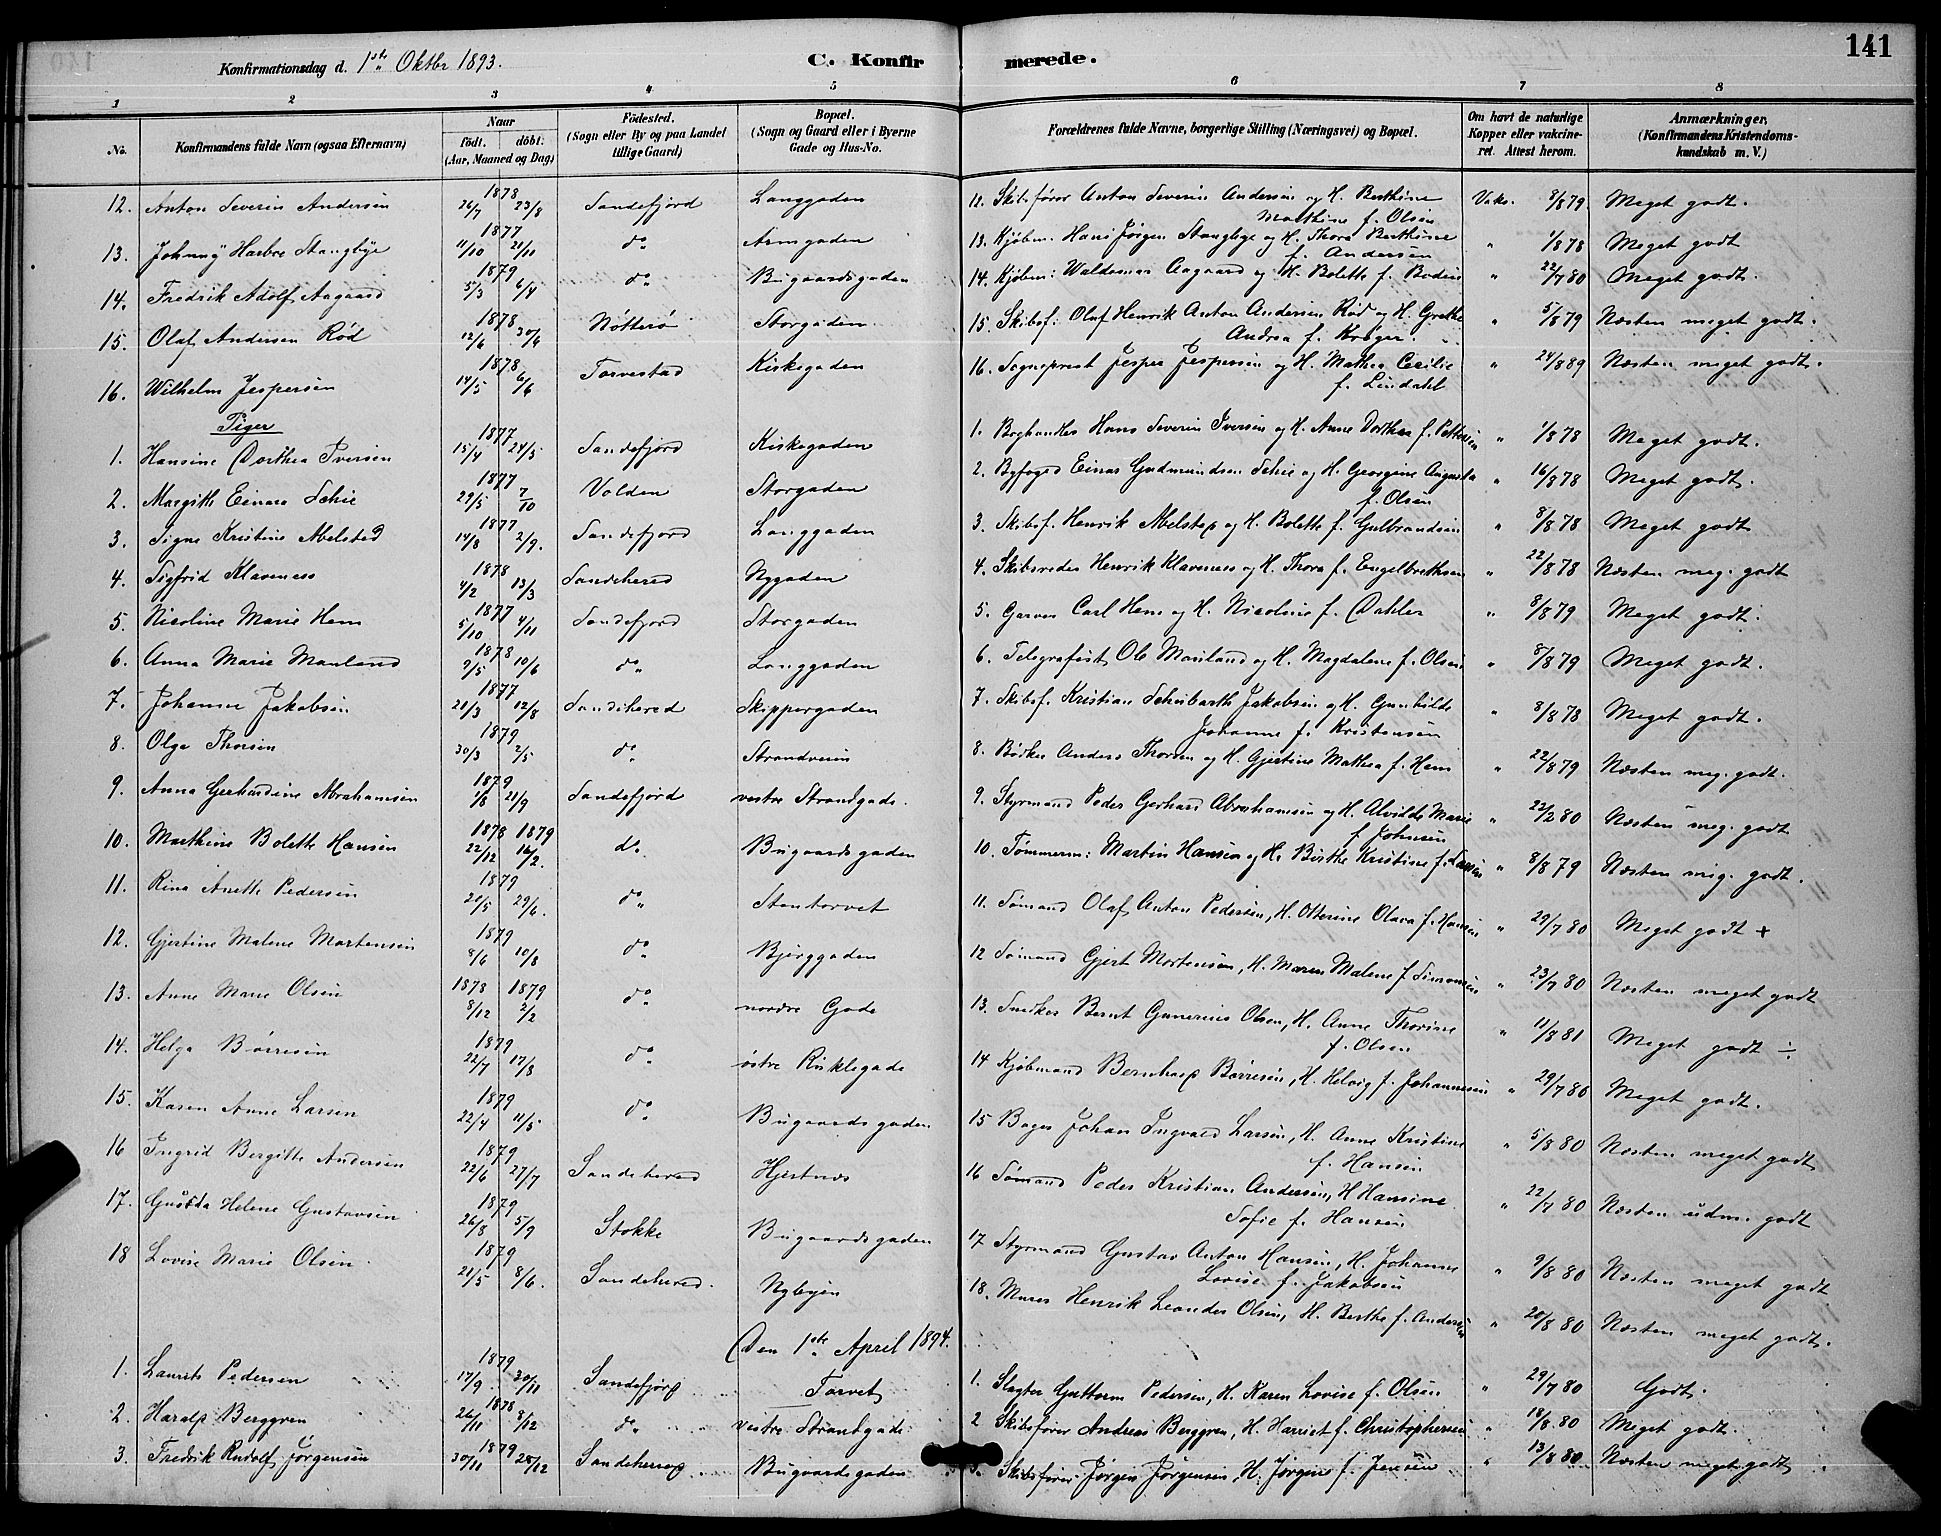 Konfirmationsdag d. 1ste Oktbr 1893. C. Konfirmerede. 141
1 2 3 4 5 6 7 8
No. Konfirmandens fulde Navn (ogsaa Efternavn) Naar födt. döbt. (Aar, Maaned og Dag) Födested. (Sogn eller By og paa Landet tillige Gaard) Bopæl. (Sogn og Gaard eller i Byerne Gade og Hus-No. Forældrenes fulde Navne, borgerlige Stilling (Næringsvei) og Bopæl. Om havt de naturlige Kopper eller vakcineret. Attest herom. Anmærkninger, (Konfirmandens Kristendomskundskab m. V.)
12. Anton Severin Andersen 1878 26/7 23/8 Sandefjord Langgaden 12. Skibsfører Anton Severin Andersen og H. Berthine Mathine f. Olsen Vaks. 8/8 79. Meget godt.
13. Johnny Harbro Stangbye 1877 11/10 21/11 do Armgaden 13. Kjøbm. Hans Jørgen Stangbye og H. Thora Berthine f. Andersen " 1/8 78 Meget godt
14. Fredrik Adolf Aagaard 1879 5/3 6/4 do Bugaardsgaden 14. Kjøbm: Waldemar Aagaard og H. Bolette f. Bodin " 22/7 80 Meget godt.
15. Olaf Andersen Rød 1878 12/6 30/6 Nötterö Storgaden 15. Skibsf: Olaf Henrik Anton Andersen Rød og H. Grethe Andrea f. Krøger. " 5/8 79 Næsten meget godt.
16. Wilhelm Jespersen 1878 14/5 6/6 Torvestad Kirkegaden 16. Sogneprest Jesper Jespersen og H. Mathea Cecilie f. Lindahl " 24/8 89 Næsten meget godt.
Piger
1. Hansine Dorthea Iversen 1877 15/4 24/5 Sandefjord Kirkegaden 1. Boghandler Hans Severin Iversen og H. Anne Dorthea f. Pettersen " 1/8 78 Meget godt.
2. Margith Einara Schie 1877 29/5 7/10 Volden Storgaden 2. Byfoged Einar Gudmundsen Schie og H. Georgine Augusta f. Olsen " 16/8 78 Meget godt.
3. Signe Kristine Abelsted 1877 14/8 2/9. Sandefjord Langgaden 3. Skibsf. Henrik Abelsted og H. Bolette f. Gulbrandsen " 8/8 78 Meget godt
4. Sigfrid Klaveness 1878 4/2 13/3 Sandeherred Nygaden 4. Skibsreder Henrik Klaveness og H. Thora f. Engelbrethsen " 22/8 78 Næsten meg. godt
5. Nicoline Marie Hem 1877 5/10 4/11 Sandefjord Storgaden 5. Garver Carl Hem og H. Nicoline f. Dahler " 8/8 79 Meget godt.
6. Anna Marie Mauland 1878 9/5 10/6 do Langgaden 6. Telegrafist Ole Mauland og H. Magdalene f. Olsen " 8/8 79 Meget godt.
7. Johanne Jakobsen 1877 21/3 12/8 Sandehered Skippergaden 7. Skibsf. Kristian Schubarth Jakobsen og H. Gunhilde Johanne f. Kristensen " 8/8 78 Meget godt.
8. Olga Thorsen 1879 30/3 2/5 do Strandveien 8. Bödker Anders Thorsen og H. Gjertine Mathea f. Hem " 22/8 79 Næsten meg. godt.
9. Anna Gerhardine Abrahamsen 1879 1/8 21/9 Sandefjord vestre Strandgade. 9. Styrmand Peder Gerhard Abrahamsen og H. Alvilde Marie f. Johnsen " 22/2 80 Næsten meg. godt
10. Marthine Bolette Hansen 1878 1879 22/12 16/2. do Bugaardsgaden 10. Tømmerm: Martin Hansen og H. Birthe Kristine f. Larsen " 8/8 79 Næsten meg. godt.
11. Rina Anette Pedersen 1879 20/5 29/6. do Stentorvet 11. Sømand Olaf Anton Pedersen, H. Otterine Olava f. Hansen " 29/7 80 Meget godt +
12. Gjertine Malene Mortensen 1879 8/6 10/8 do Bjerggaden 12 Sømand Gjert Mortensen, H. Maren Malene f. Simonsen " 23/7 80 Næsten meget godt
13. Anne Marie Olsen 1878 1879 8/12 2/2 do nordre Gade 13. Snedker Bernt Gunerius Olsen, H. Anne Thorine f. Olsen " 11/8 81 Meget godt ÷
14. Helga Börresen 1879 22/7 17/8 do östre Kirkegade 14 Kjøbmand Bernhard Börresen, H. Helvig f. Johannesen " 29/7 80 Meget godt.
15. Karen Anne Larsen 1879 22/4 11/5 do Bugaardsgaden 15 Bager Johan Ingvald Larsen, H. Anne Kristine f. Hansen " 5/8 80 Næsten meget godt
16 Ingrid Bergitte Andersen 1879 22/6 27/7 Sandeherred Hjertnes 16 Sømand Peder Kristian Andersen, H. Hansine Sofie f. Hansen " 22/7 80 Næsten udm. godt
17. Gusta Helene Gustavsen 1879 26/8 5/9 Stokke Bugaardsgaden 17 Styrmand Gustav Anton Hansen, H. Johanne Lovise f. Jakobsen " 9/8 80 Næsten meget godt
18 Lovise Marie Olsen 1879 21/5 8/6. Sandeherred. Nybyen 18. Murer Henrik Leander Olsen, H. Berthe f. Andersen " 20/8 80 Næsten meget godt.
Den 1ste April 1894.
1. Laurits Pedersen 1879 17/9. 30/11 Sandefjord Torvet 1. Slagter Guttorm Pedersen, H. Karen Lovise f. Olsen " 29/7 80 Godt.
2. Harald Berggren 1878 26/11 8/12 do vestre Strandgade 2 Skibsfører Andreas Berggren, H. Harriet f. Christophersen " 18/8 80 Meget godt.
3. Fredrik Rudolf Jörgensen 1879 30/11 28/12 Sandeherred Bugaardsgaden 3. Skibsfører Jørgen Jørgensen, H. Jørgine f. Jensen " 13/8 80 Næsten meget godt